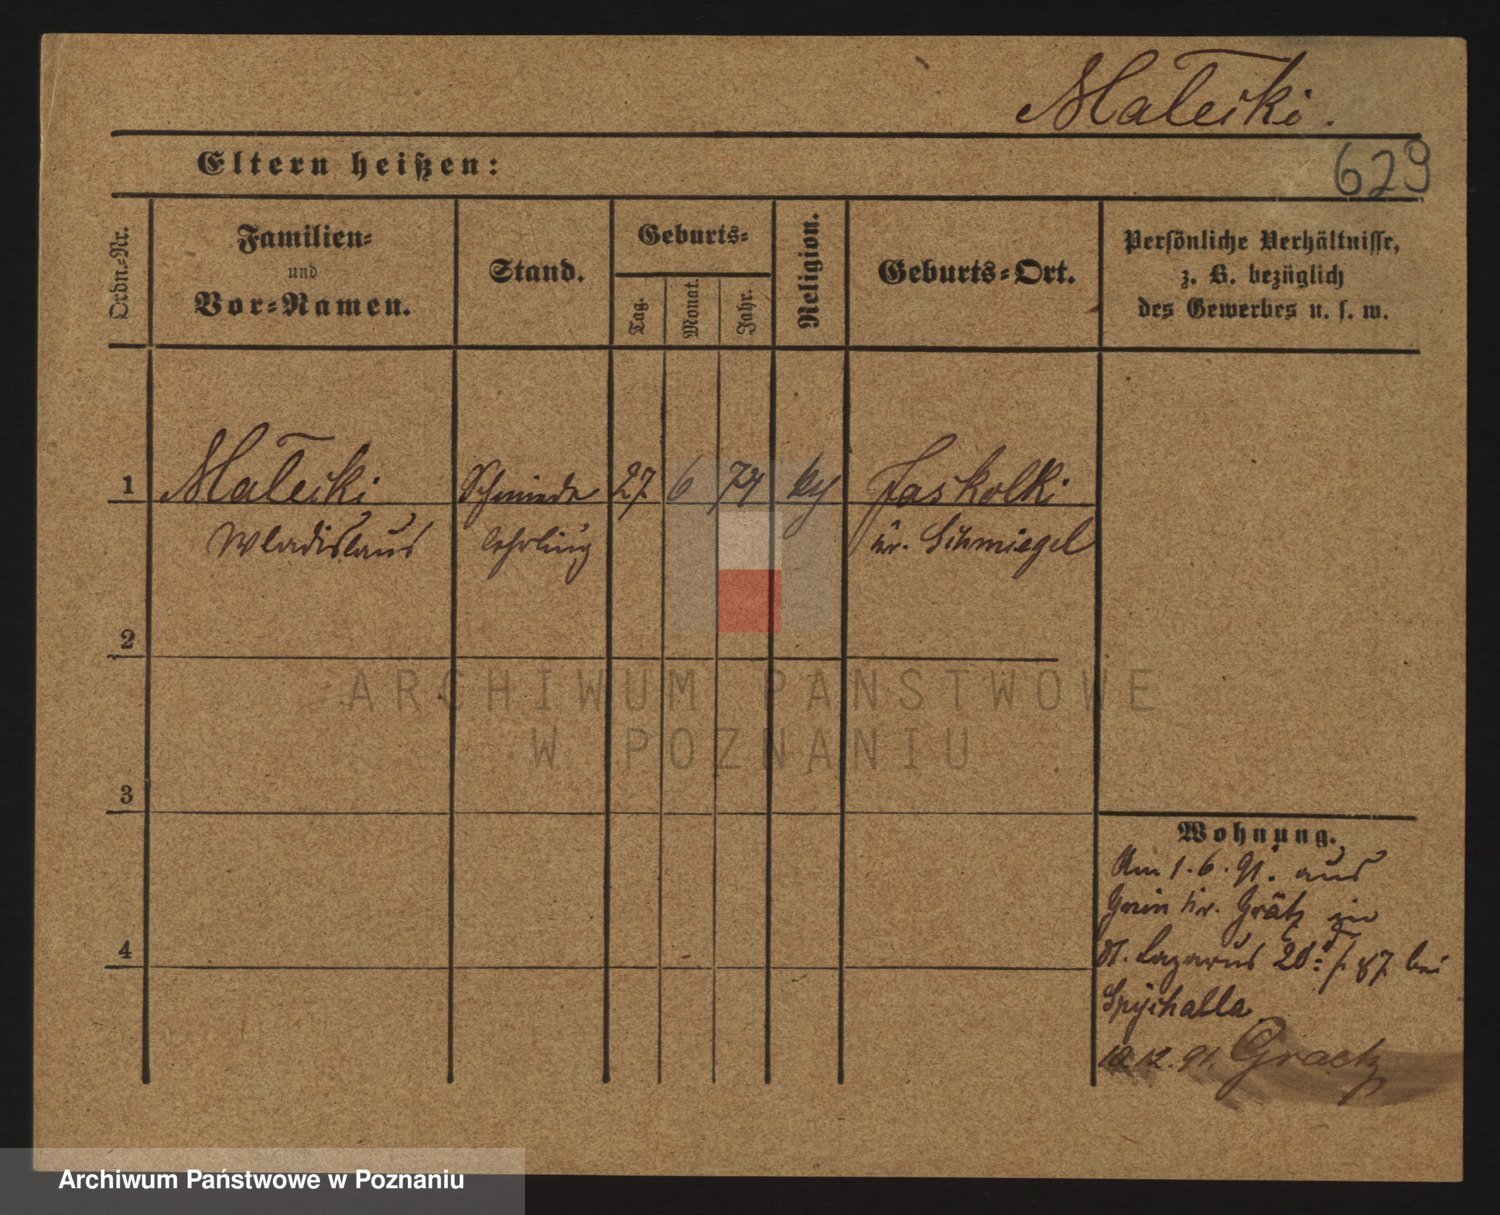 Małecki.
Eltern heißen:
629
Ordn.-Nr.
Familien-
und
Vor-Namen.
Stand.
Geburts-
Tag.
Monat.
Jahr.
Religion.
Geburts-Ort.
Persönliche Verhältnisse,
z. B. bezüglich
des Gewerbes u. s. w.
1
Małecki
Schmiede
27
6
74
Jaskolki
Wladislaus
lehrling
kr. Schmiegel
2
ARCHIWUM PAŃSTWOWE
W POZNANIU
3
Wohnung.
Am 1. 6. 91. aus
Kr. Grätz in
St. Lazarus 20 87 bei
Spychalla
12. 91. Graetz
4
Archiwum Państwowe w Poznaniu